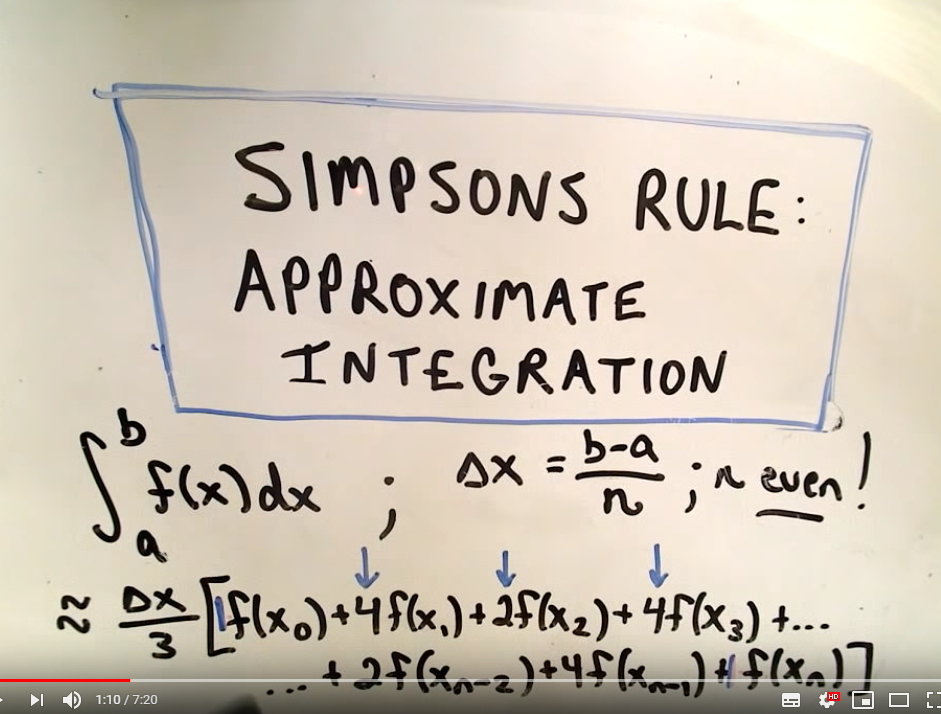 SIMPSONS RULE:
APPROXIMATE
INTEGRATION
∫_a^b f(x)dx ; Δx = (b-a)/n ; n even!
≈ Δx/3 [1f(x₀)+4f(x₁)+2f(x₂)+4f(x₃)+...
...+2f(xₙ₋₂)+4f(xₙ₋₁)+1f(xₙ)]
1:10 / 7:20
HD